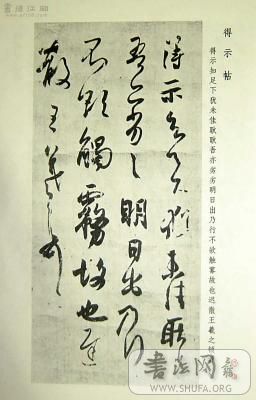 得示帖
得示知足下犹未佳耿耿吾亦劣劣明日出乃行不欲触雾故也迟散王羲之顿首
得示知足下猶未佳耿耿
吾亦劣劣明日出乃行
不欲觸霧故也遲
散王羲之頓首
書法江湖
書法网
WWW.SHUFA.ORG